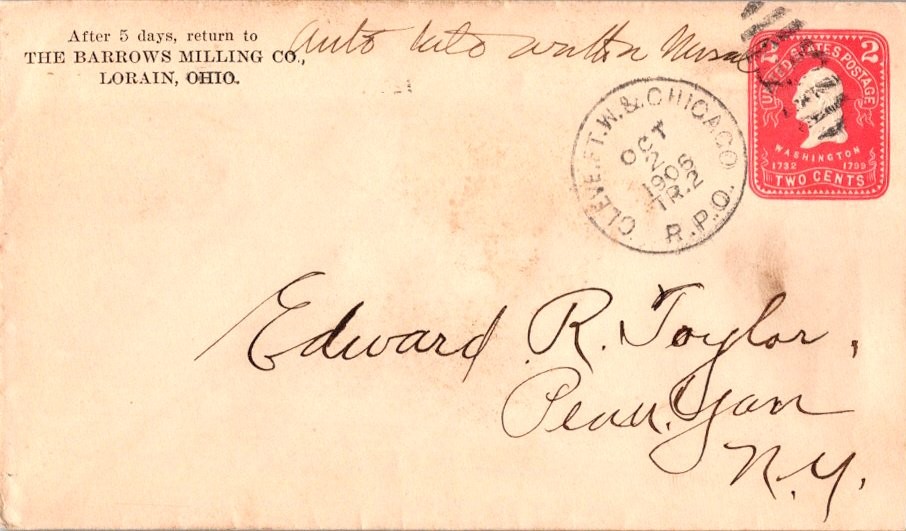 After 5 days, return to
THE BARROWS MILLING CO.,
LORAIN, OHIO.
auto
CLEVE. FT. W. & CHICAGO
OCT
2
1906
TR. 2
R.P.O.
2 2
UNITED STATES POSTAGE
WASHINGTON
1732 1799
TWO CENTS
Edward R. Taylor,
Penn. Yan
N.Y.